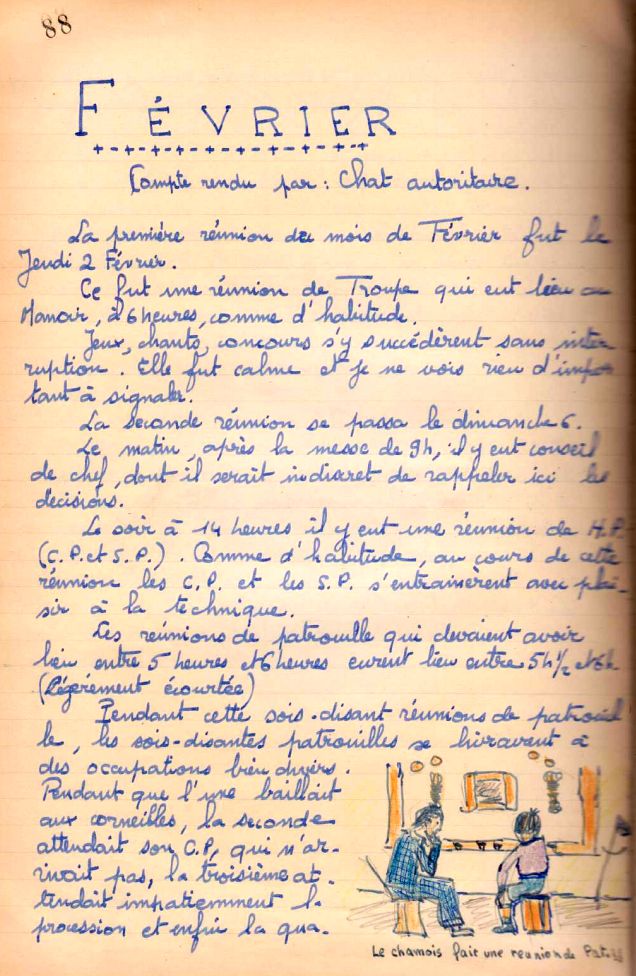 88
FÉVRIER
Compte rendu par : Chat autoritaire.
La première réunion du mois de Février fut le
Jeudi 2 Février.
Ce fut une réunion de Troupe qui eut lieu au
Manoir, à 6 heures, comme d'habitude.
Jeux, chants, concours s'y succédèrent sans inter
ruption. Elle fut calme et je ne vois rien d'impor
tant à signaler.
La seconde réunion se passa le dimanche 6.
Le matin, après la messe de 9h, il y eut conseil
de chef, dont il serait indiscret de rappeler ici les
decisions.
Le soir à 14 heures il y eut une réunion de H.P.
(C.P. et S.P.). Comme d'habitude, au cours de cette
réunion les C.P. et les S.P. s'entrainèrent avec plai-
sir à la technique.
Les reúnions de patrouille qui devaient avoir
lieu entre 5 heures et 6 heures eurent lieu entre 5h 1/2 et 6h
(légèrement écourtée)
Pendant cette sois-disant réunions de patrouil
le, les sois-disantes patrouilles se livravent à
des occupations bien divers.
Pendant que l'une baillait
aux corneilles, la seconde
attendait son C.P. qui n'ar-
rivait pas, la troisième at-
tendait impatiemment la
procession et enfin la qua-
Le chamois fait une reunion de Pat.